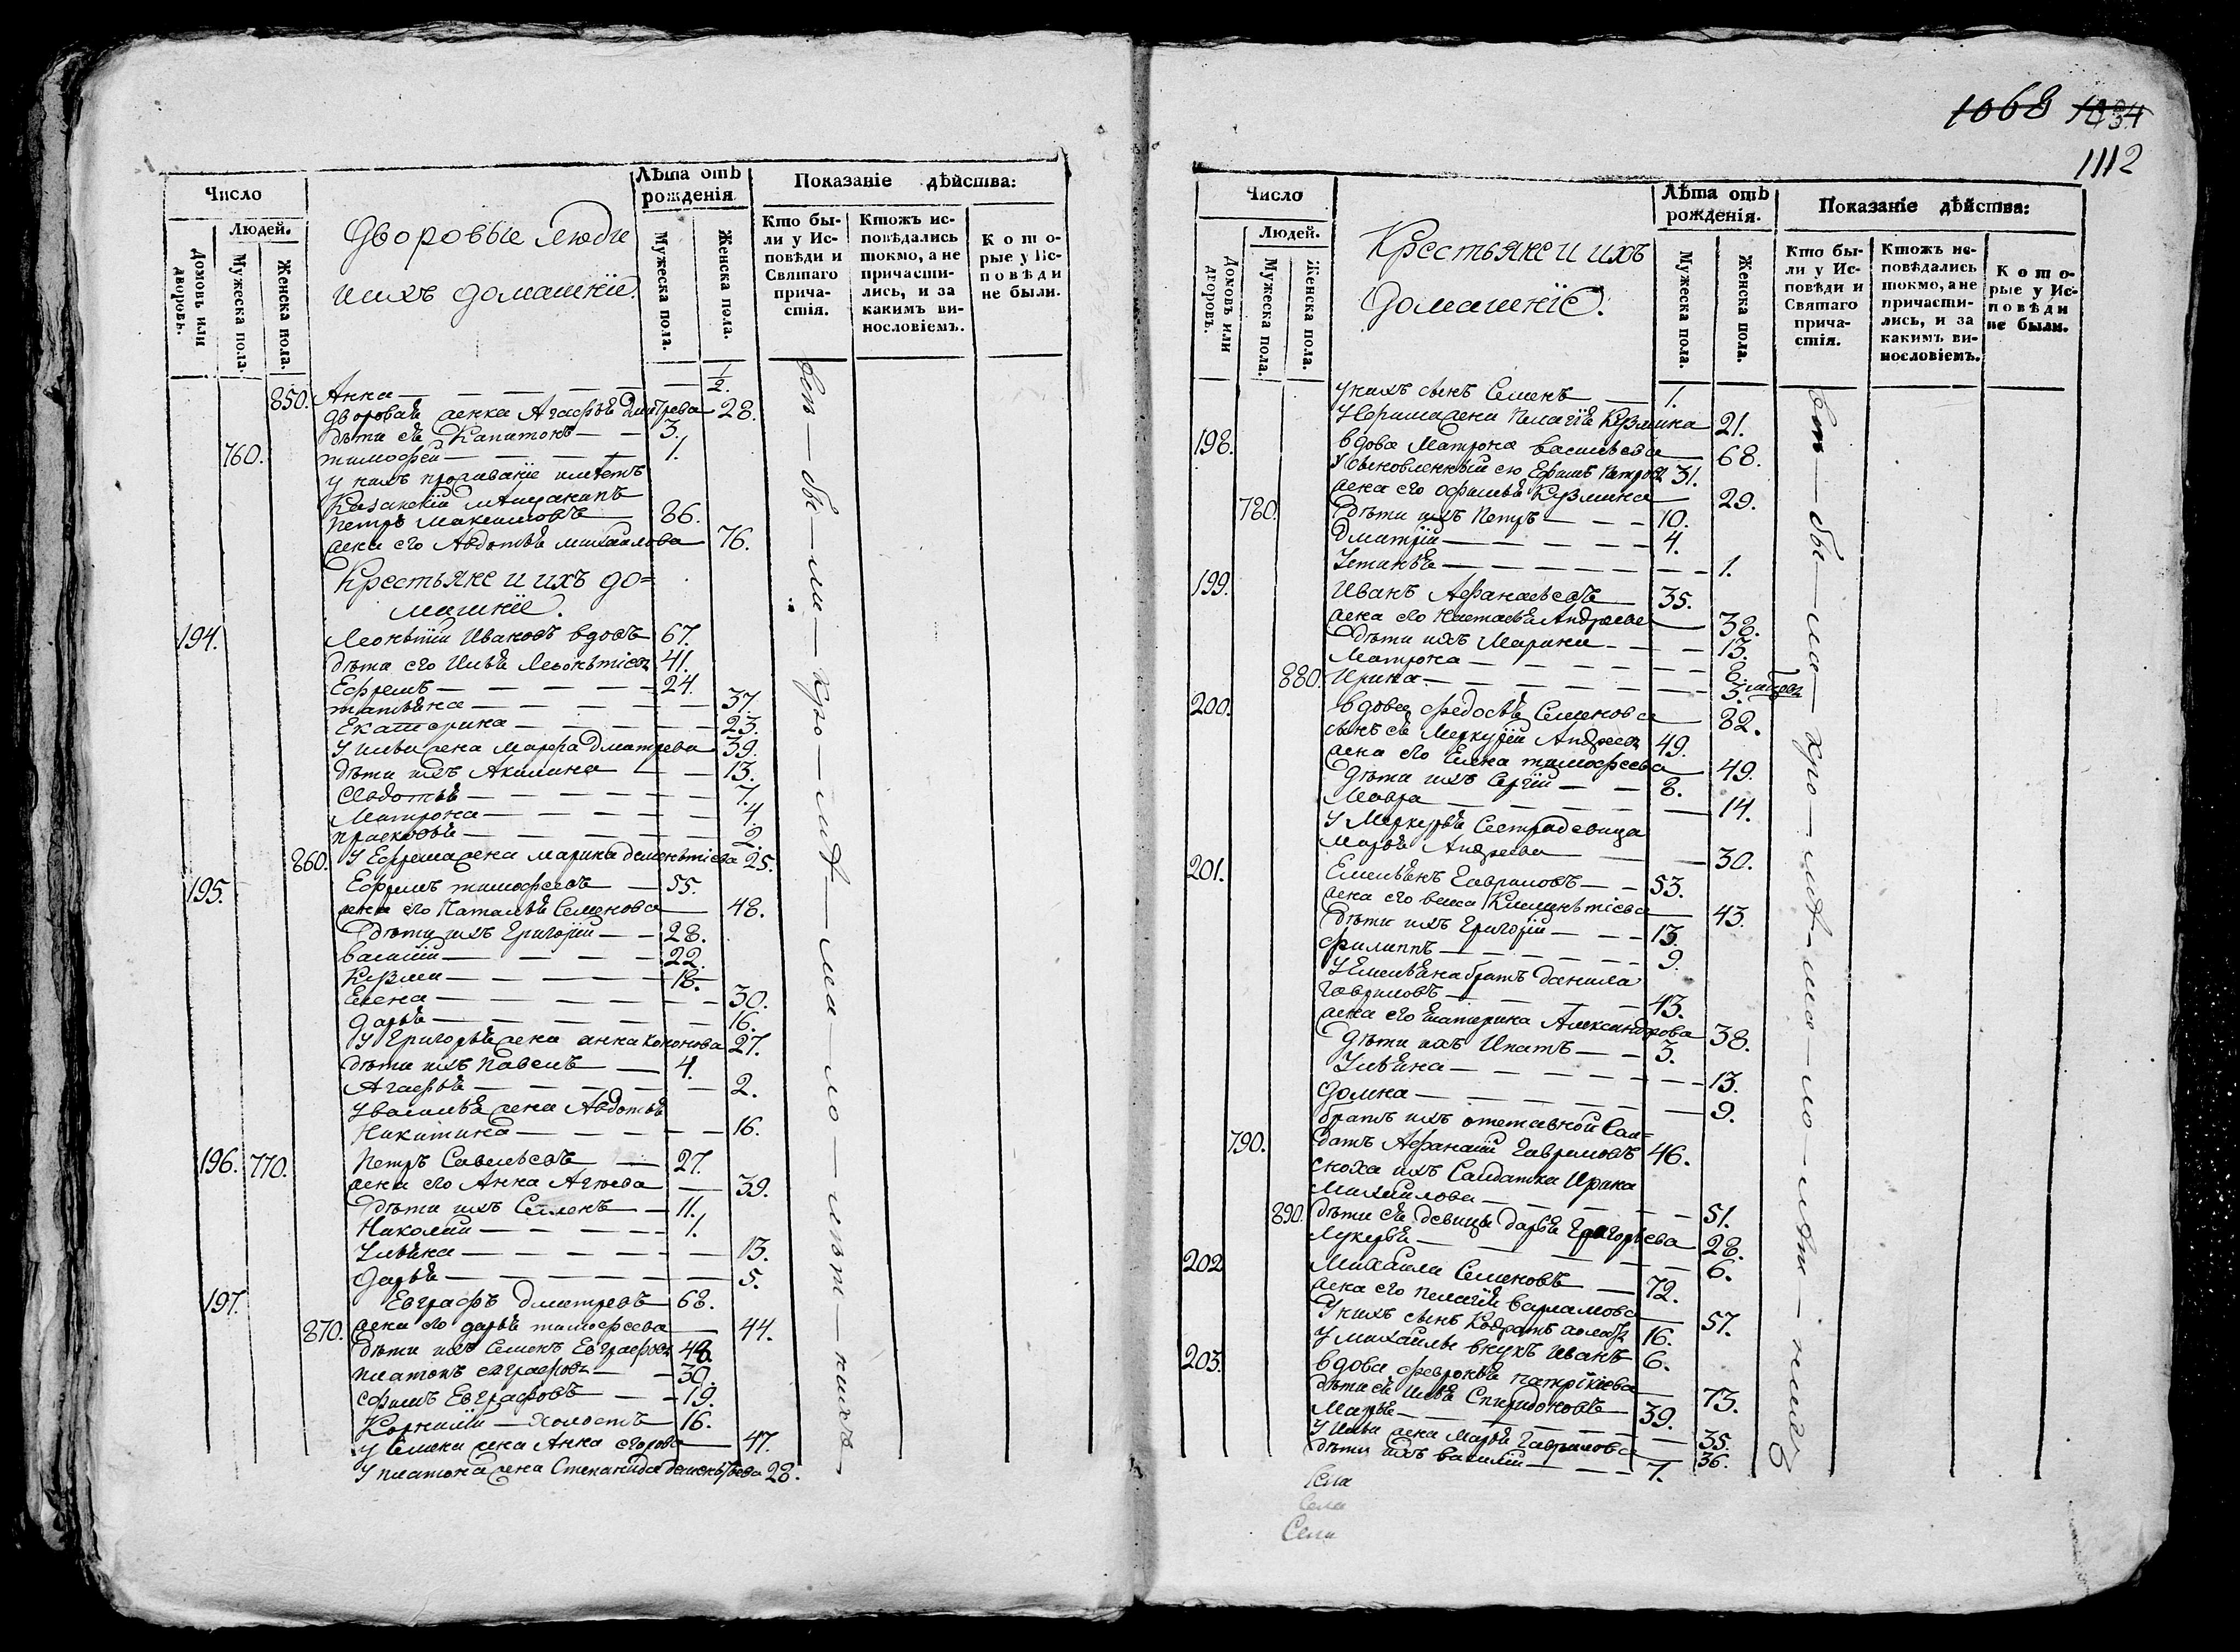 Число
Людей.
Домовъ или дворовъ.
Мужеска пола.
Женска пола.
Дворовые люди
и ихъ домашніе.
Лѣта отъ рожденія
Мужеска пола.
Женска пола.
Показаніе дѣйства:
Кто бы-
ли у Ис-
повѣди и
Святаго
прича-
стія.
Ктожъ ис-
повѣдались
токмо, а не
причасти-
лись, и за
какимъ ви-
нословіемъ.
Кото-
рые у Ис-
повѣди
не были.
850. Анна — 1/2.
дворовая женка Агафья Дмитрева 28.
дѣти ея Капитонъ — 3.
760. Тимофей — 1.
у нихъ проживаніе имѣетъ
Казанскій мещанинъ
Петръ Максимовъ — 86.
жена его Авдотья Михаилова — 76.
Крестьяне и ихъ до=
машніе.
194. Леонтій Ивановъ вдовъ 67.
дѣти его Илья Леонтіевъ 41.
Ефремъ — 24.
Татьяна — 37.
Екатерина — 23.
У Ильи жена Марфа Дмитрева 39.
дѣти ихъ Акилина — 13.
Авдотья — 7.
Матрона — 4.
Прасковья — 2.
860. У Ефрема жена Марина Дементіева 25.
195. Ефремъ Тимофеевъ — 55.
жена его Наталья Семенова — 48.
дѣти ихъ Григорій — 28.
Василій — 22.
Кузма — 18.
Елена — 30.
Дарья — 16.
У Григорья жена Анна Кононова 27.
дѣти ихъ Павелъ — 4.
Агафья — 2.
У Василья жена Авдотья
Никитина — 16.
196. 770. Петръ Савельевъ — 27.
жена его Анна Агѣева — 39.
дѣти ихъ Семенъ — 11.
Николай — 1.
Ульяна — 13.
Дарья — 5.
197. Евграфъ Дмитревъ 68.
870. жена его Дарья Тимофеева — 44.
дѣти ихъ Семенъ Евграфовъ 48.
Платонъ Евграфовъ — 30.
Ефимъ Евграфовъ — 19.
Корнилій — холостъ 16.
У Семена жена Анна Егорова — 47.
У Платона жена Степанида Дементьева 28.
1068 1034
1112
Число
Людей.
Домовъ или дворовъ.
Мужеска пола.
Женска пола.
Крестьяне и ихъ
домашніе.
Лѣта отъ рожденія.
Мужеска пола.
Женска пола.
Показаніе дѣйства:
Кто бы-
ли у Ис-
повѣди и
Святаго
прича-
стія.
Ктожъ ис-
повѣдались
токмо, а не
причасти-
лись, и за
какимъ ви-
нословіемъ.
Кото-
рые у Ис-
повѣди
не были.
у нихъ сынъ Семенъ — 1.
жена Пелагія Кузмина 21.
198. вдова Матрона Васильева — 68.
Усыновленный ею Ефимъ Петровъ 31.
жена его Офимья Кузмина — 29.
780. дѣти ихъ Петръ — 10.
Дмитрій — 4.
Устинья — 1.
199. Иванъ Афанасьевъ — 35.
жена его Настасья Андреева — 38.
дѣти ихъ Марина — 13.
Матрона — 8.
880. Ирина — 3.
200. вдова Федосья Семенова — 82.
сынъ ея Меркурій Андреевъ 49.
жена его Елена Тимофеева — 49.
дѣти ихъ Сергій — 8.
Мавра — 14.
У Меркурья сестра девица
Марья Андреева — 30.
201. Емельянъ Гавриловъ — 53.
жена его Васса Климентіева — 43.
дѣти ихъ Григорій — 13.
Филиппъ — 9.
У Емельяна братъ Данила
Гавриловъ — 43.
жена его Екатерина Александрова 38.
дѣти ихъ Ипатъ — 3.
Ульяна — 13.
Домна — 9.
братъ ихъ отставной Сол=
790. датъ Афанасій Гавриловъ 46.
сноха ихъ Солдатка Ирина
Михаилова — 51.
890. дѣти ея девица Дарья Григорьева 28.
Лукерья — 6.
202 Михаила Семеновъ — 72.
жена его Пелагія Варламова — 57.
У нихъ сынъ Кодратъ холостъ 16.
У Михаилы внукъ Иванъ 6.
203. вдова Февронья Патрикіева — 73.
дѣти ея Илья Спиридоновъ — 39.
Марья — 35.
У Ильи жена Марья Гаврилова — 36.
дѣти ихъ Василій — 7.
Села
Села
Села